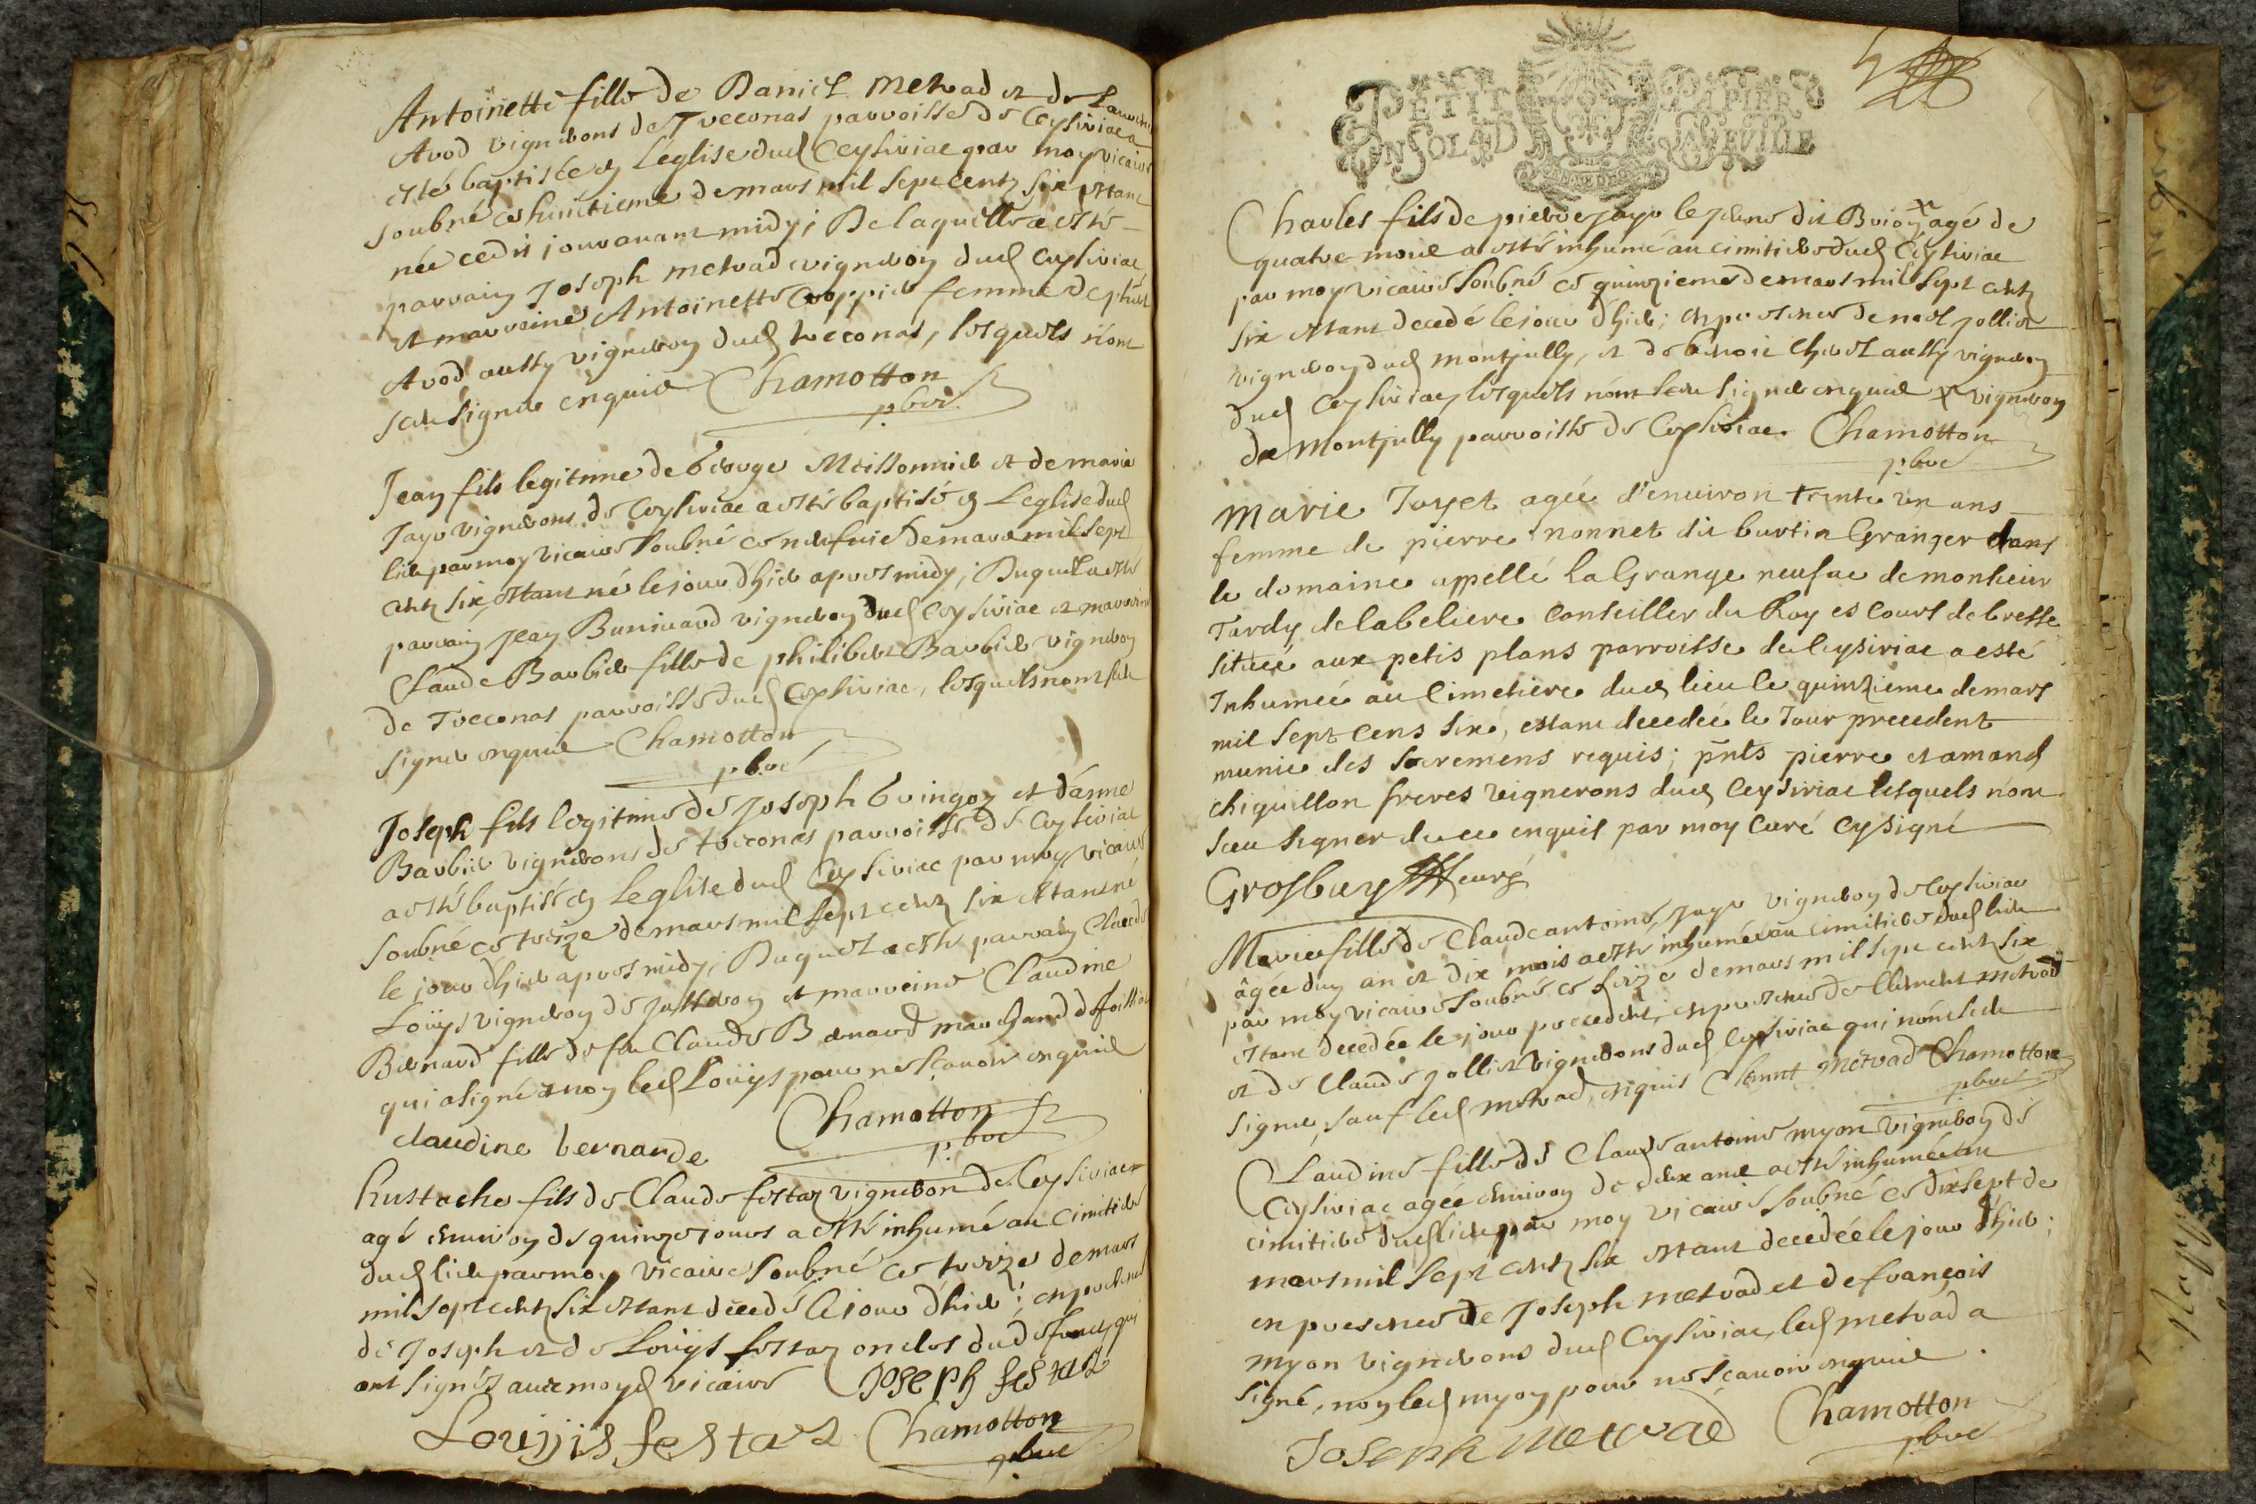 Antoinette fille de Daniel Metrad et de Laurence
Avod vignerons de Treconas parroisse de Ceysiriac a
esté baptisée en L'église dud Ceysiriac par moy vicaire
soubné ce huictieme de mars mil sept centz six estant
née ced jour avant midy; De laquelle a esté
parrain Joseph metrad vigneron dud Ceysiriac
et marraine Antoinette Croppier femme de phibt
Avod aussy vigneron dud treconas, lesquels n'ont
sceu signer enquis Chamotton
pbre
Jean fils legitime de George Meissonnier et de marie
Jayr vignerons de Ceysiriac a esté baptisé en Leglise dud
lieu par moy vicaire soubné ce neufvie de mars mil sept
centz six, estant né le jour d'hier apres midy; Duquel a esté
parrain Jean Bunivard vigneron dud Ceysiriac et marraine
Claude Barbier fille de philibert Barbier vigneron
de Treconas parroisse dud Ceysiriac, lesquels n'ont sceu
signer enquis Chamotton
pbre
Joseph fils legitime de Joseph Gringoz et d'anne
Barbier vignerons de treconas parroisse de Ceysiriac
a esté baptisé en Leglise dud Ceysiriac par moy vicaire
soubné ce treize de mars mil sept centz six estant né
le jour d'hier apres midy; Duquel a esté parrain Claude
Loüys vigneron de Jasseron et marraine Claudine
Bernard fille de feu Claude Bernard marchand de
qui a signé et non led Loüys pour ne sçavoir enquis
claudine bernarde Chamotton
pbre
hustache fils de Claude festaz vigneron de Ceysiriac
agé environ de quinze jours a esté inhumé au cimitiere
dud lieu par moy vicaire soubné ce treize de mars
mil sept centz six estant decedé le jour d'hier; en presence
de Joseph et de Loüys festaz oncles du defunct, qui
ont signés avec moyd vicaire Joseph festaz
Louijis festaz Chamotton
pbre
PETIT PAPIER
UN SOL 4 D LA FEUILLE
Charles fils de pierre Jayr le jeune dit Brion x agé de
quatre mois a esté inhumé au cimitiere dud Ceysiriac
par moy vicaire soubné ce quinzieme de mars mil sept centz
six estant decedé le jour d'hier; en presence de noel jollier
vigneron dud montjully, et de benoit chevet aussy vigneron
dud Ceysiriac lesquels n'ont sceu signer enquis x vigneron
de Montjully parroisse de Ceysiriac. Chamotton
pbre
Marie Joyet agée d'environ trente un ans
femme de pierre nonnet dit burtin Granger dans
le domaine appellé La Grange neufue de monsieur
Tardy de labeliere conseiller du Roy es cours de bresse
située aux petis plans parroisse de Ceysiriac a esté
Inhumée au Cimetiere dud lieu le quinzieme de mars
mil sept cens six, estant decedée le Jour precedent
munie des sacremens requis; pnts pierre et amand
chiquillon freres vignerons dud Ceysiriac lesquels n'ont
sceu signer de ce enquis par moy Curé Cysigné
Grosbuy curé
Marie fille de Claude antoine Jayr vigneron de Ceysiriac
âgée d'un an et dix mois a esté inhumée au cimitiere dud lieu
par moy vicaire soubné ce seize de mars mil sept centz six
estant decedée le jour precedent; en presence de Clement metrad
et de Claude jollier vignerons dud Ceysiriac qui n'ont sceu
signer, sauf led metrad, enquis Clemnt Metrad Chamotton
pbre
Claudine fille de Claude antoine myon vigneron de
Ceysiriac agée environ de deux ans a esté inhumée au
cimitiere dud lieu par moy vicaire soubné ce dixsept de
mars mil sept centz six estant decedée le jour d'hier;
en presence de Joseph metrad et de françois
myon vignerons dud Ceysiriac, led metrad a
signé, non led myon pour ne scavoir enquis.
Joseph Metrad Chamotton
pbre